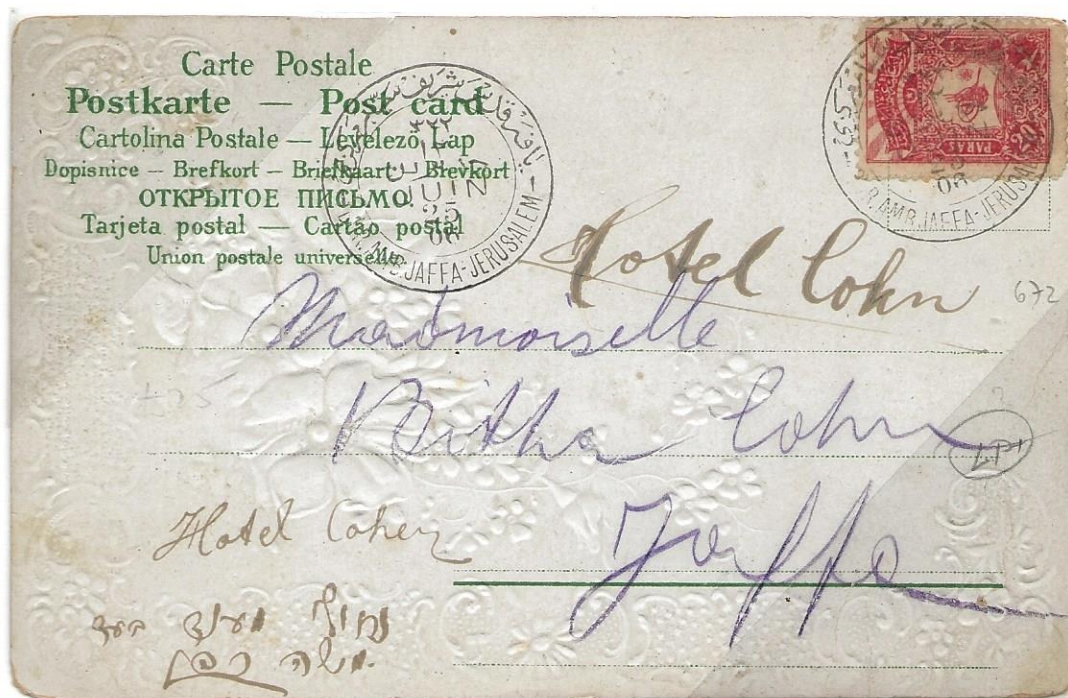 Carte Postale
Postkarte — Post card
Cartolina Postale — Levelező Lap
Dopisnice — Brefkort — Briefkaart — Brevkort
ОТКРЫТОЕ ПИСЬМО.
Tarjeta postal — Cartão postal
Union postale universelle
JUIN
25
06
AMB. JAFFA-JERUSALEM
20
PARAS
06
R. AMB. JAFFA-JERUSALEM
Hotel Cohn
672
Madmoiselle
Bitha Cohn
Jaffa
Hotel Cohen
משה